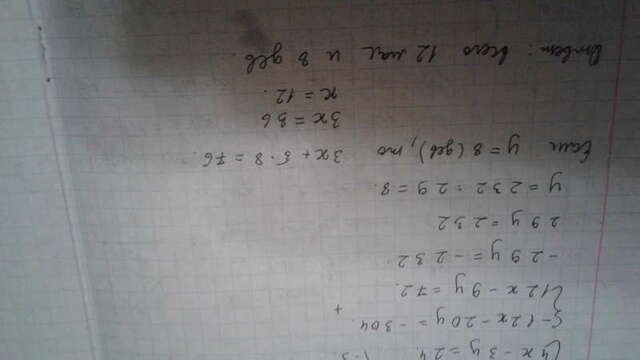 {4x - 3y = 24. | · 3
{-12x - 20y = -304. +
{12x - 9y = 72.
-29y = -232
29y = 232
y = 232 : 29 = 8.
Если y = 8 (дев), то 3x + 5·8 = 76.
3x = 36
x = 12.
Ответ: всего 12 мал и 8 дев.